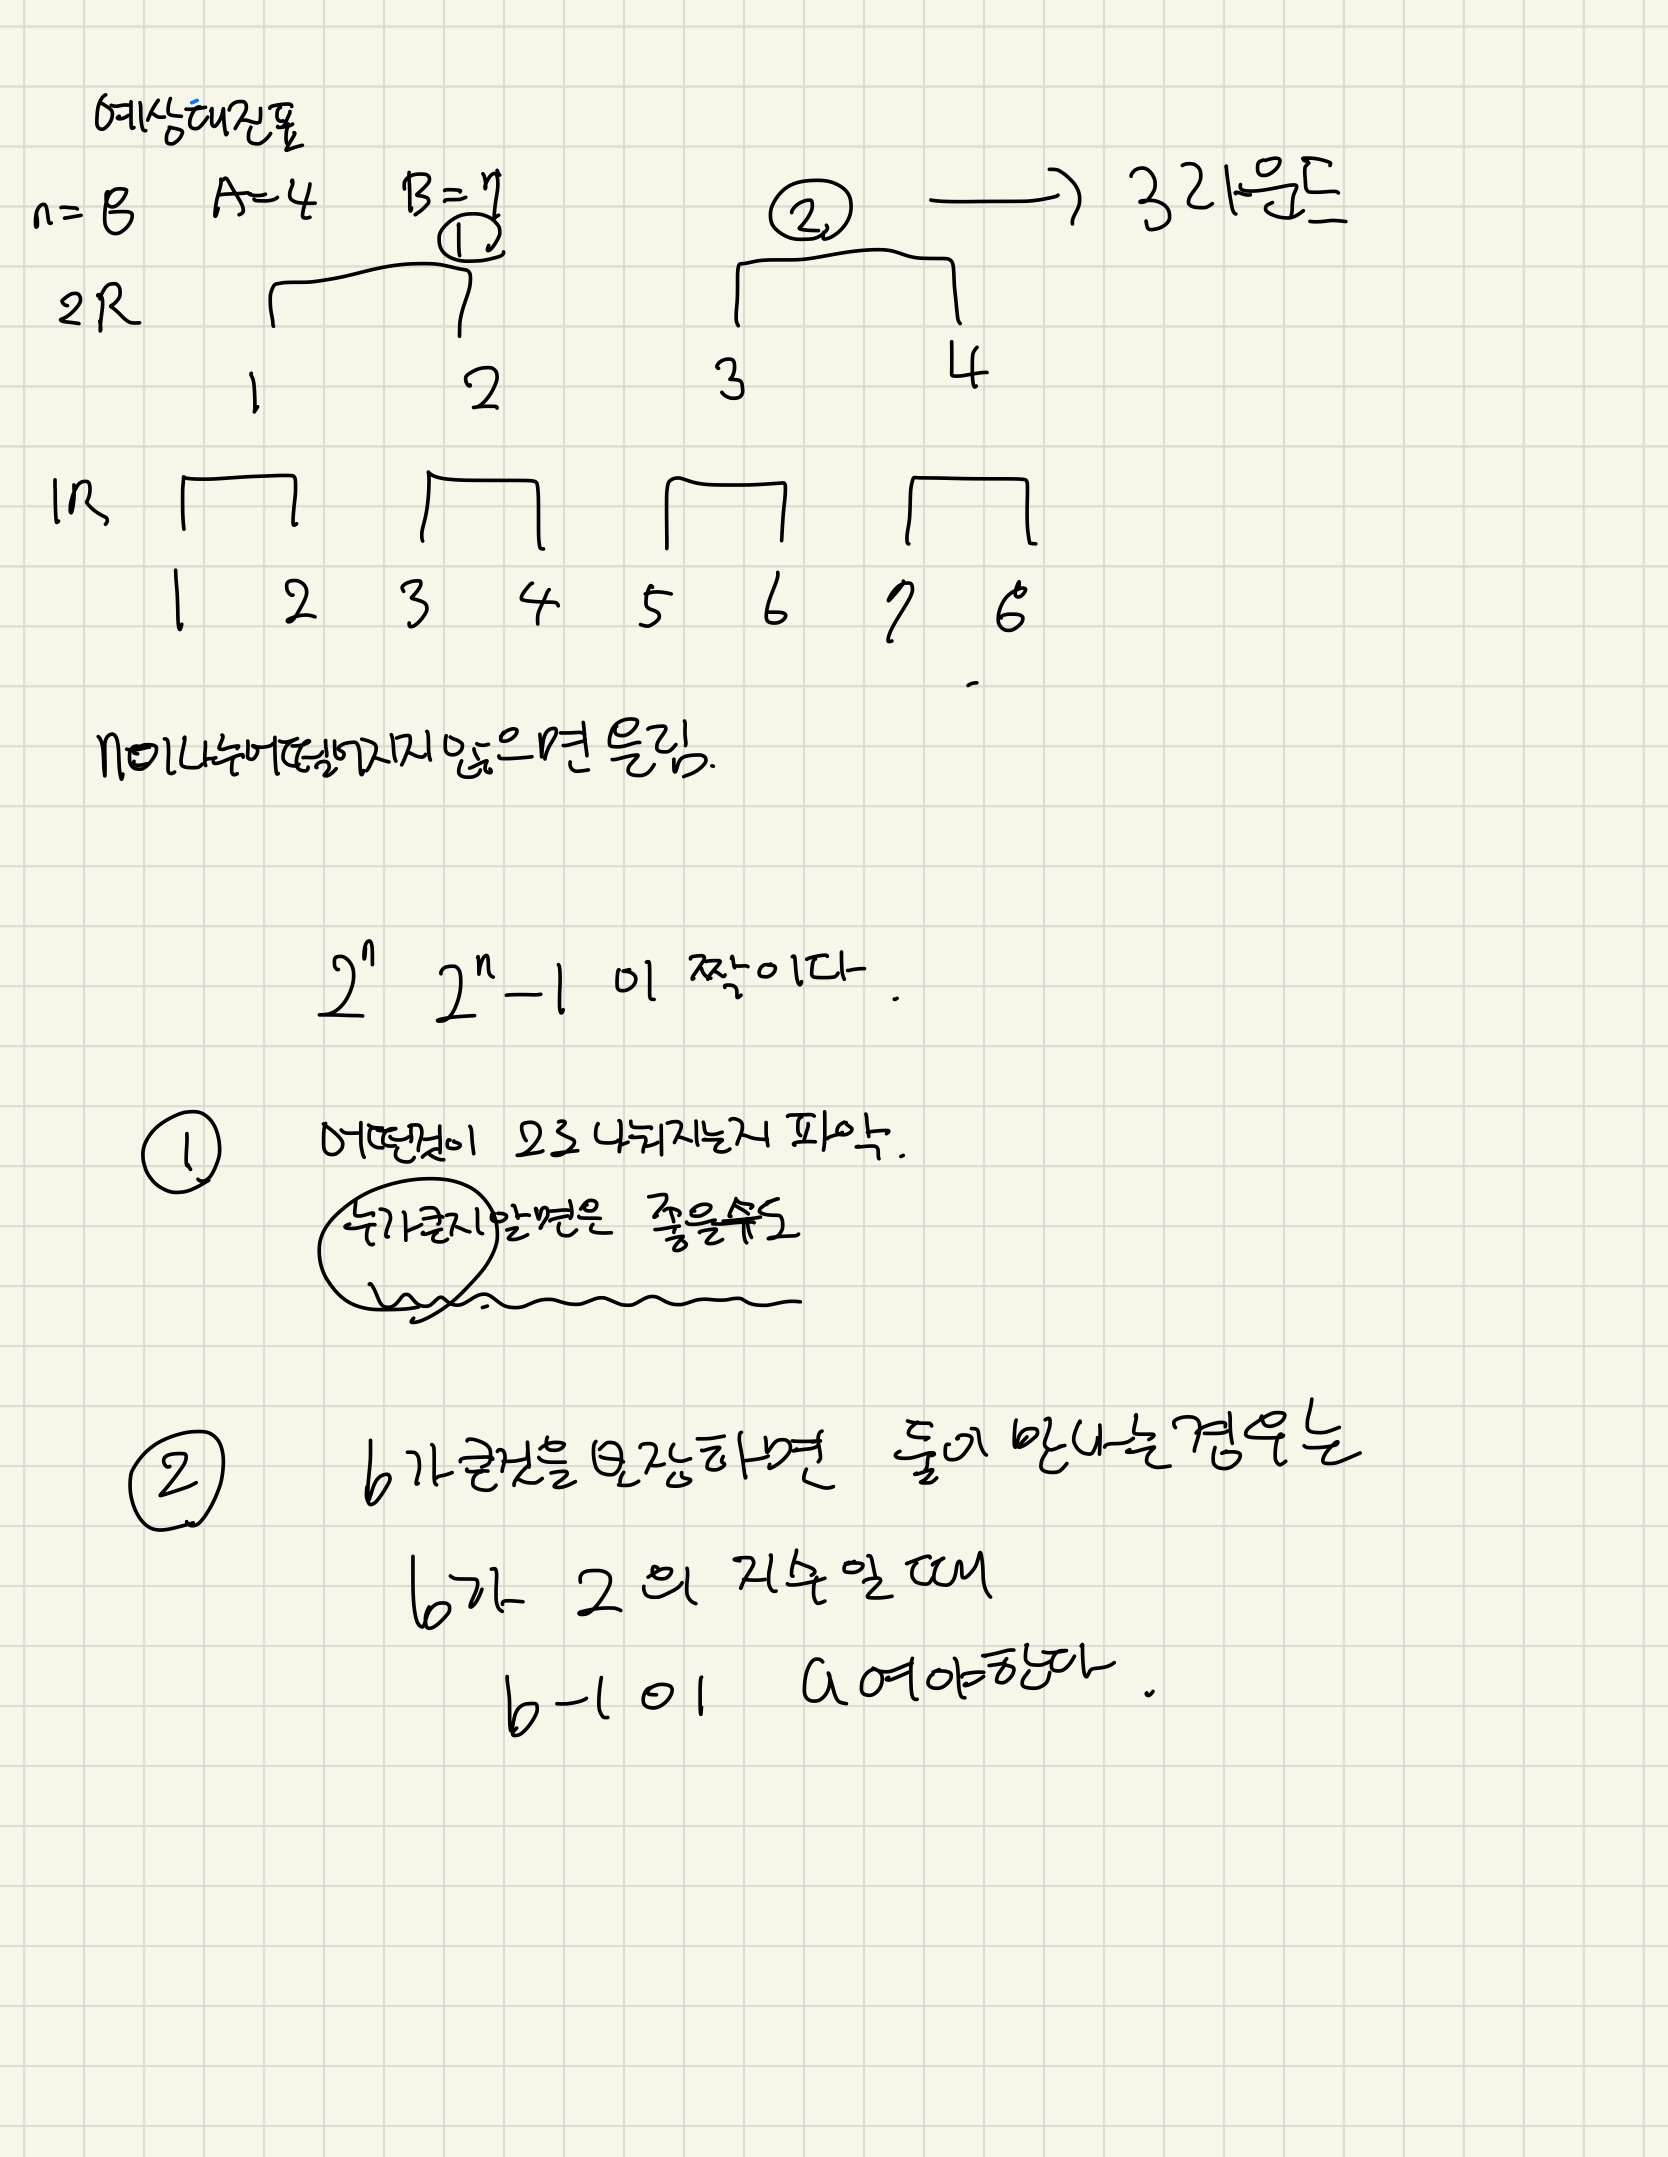 예상대진표
n=8 A=4 B=7
① ② → 3라운드
2R
1 2 3 4
1R
1 2 3 4 5 6 7 8
n이 나누어떨어지지 않으면 올림.
2ⁿ 2ⁿ-1 이 짝이다.
① 어떤것이 2로 나눠지는지 파악.
누가클지 알면은 좋을수도
② b가 큰것을 보장하면 둘이 만나는 경우는
b가 2의 지수일 때
b-1이 a여야한다.